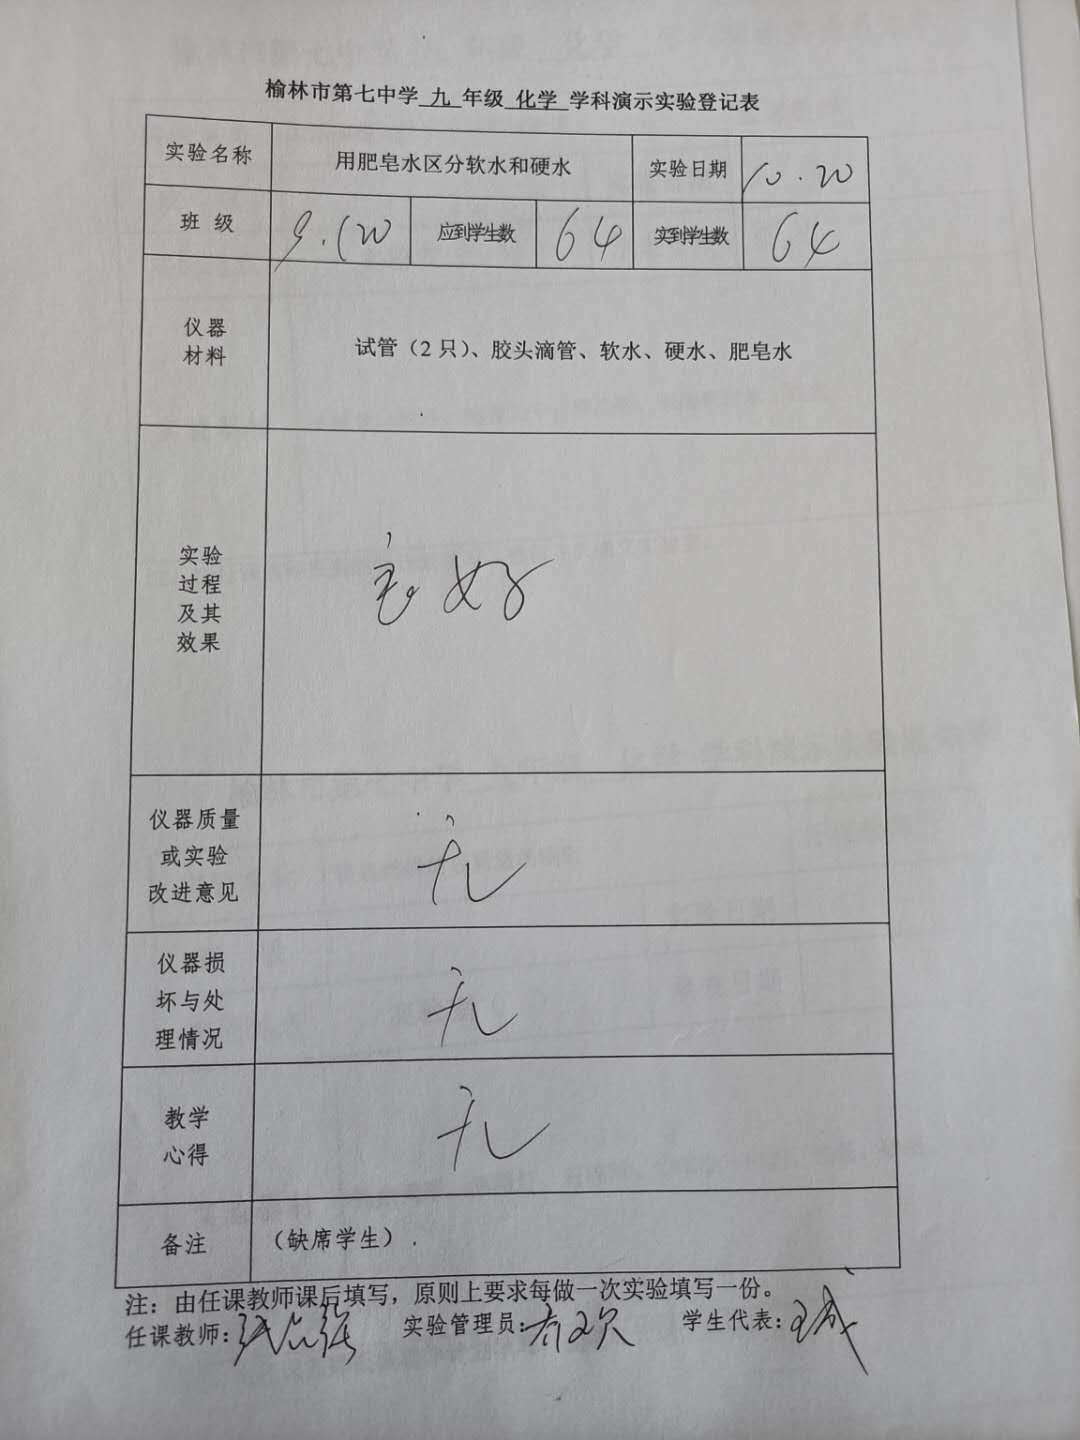 榆林市第七中学 九 年级 化学 学科演示实验登记表
实验名称 用肥皂水区分软水和硬水 实验日期 10.20
班 级 9.(20 应到学生数 64 实到学生数 64
仪器
材料
试管（2 只）、胶头滴管、软水、硬水、肥皂水
实验
过程
及其
效果
良好
仪器质量
或实验
改进意见
无
仪器损
坏与处
理情况
无
教学
心得
无
备注 （缺席学生）.
注：由任课教师课后填写，原则上要求每做一次实验填写一份。
任课教师: 实验管理员: 学生代表: